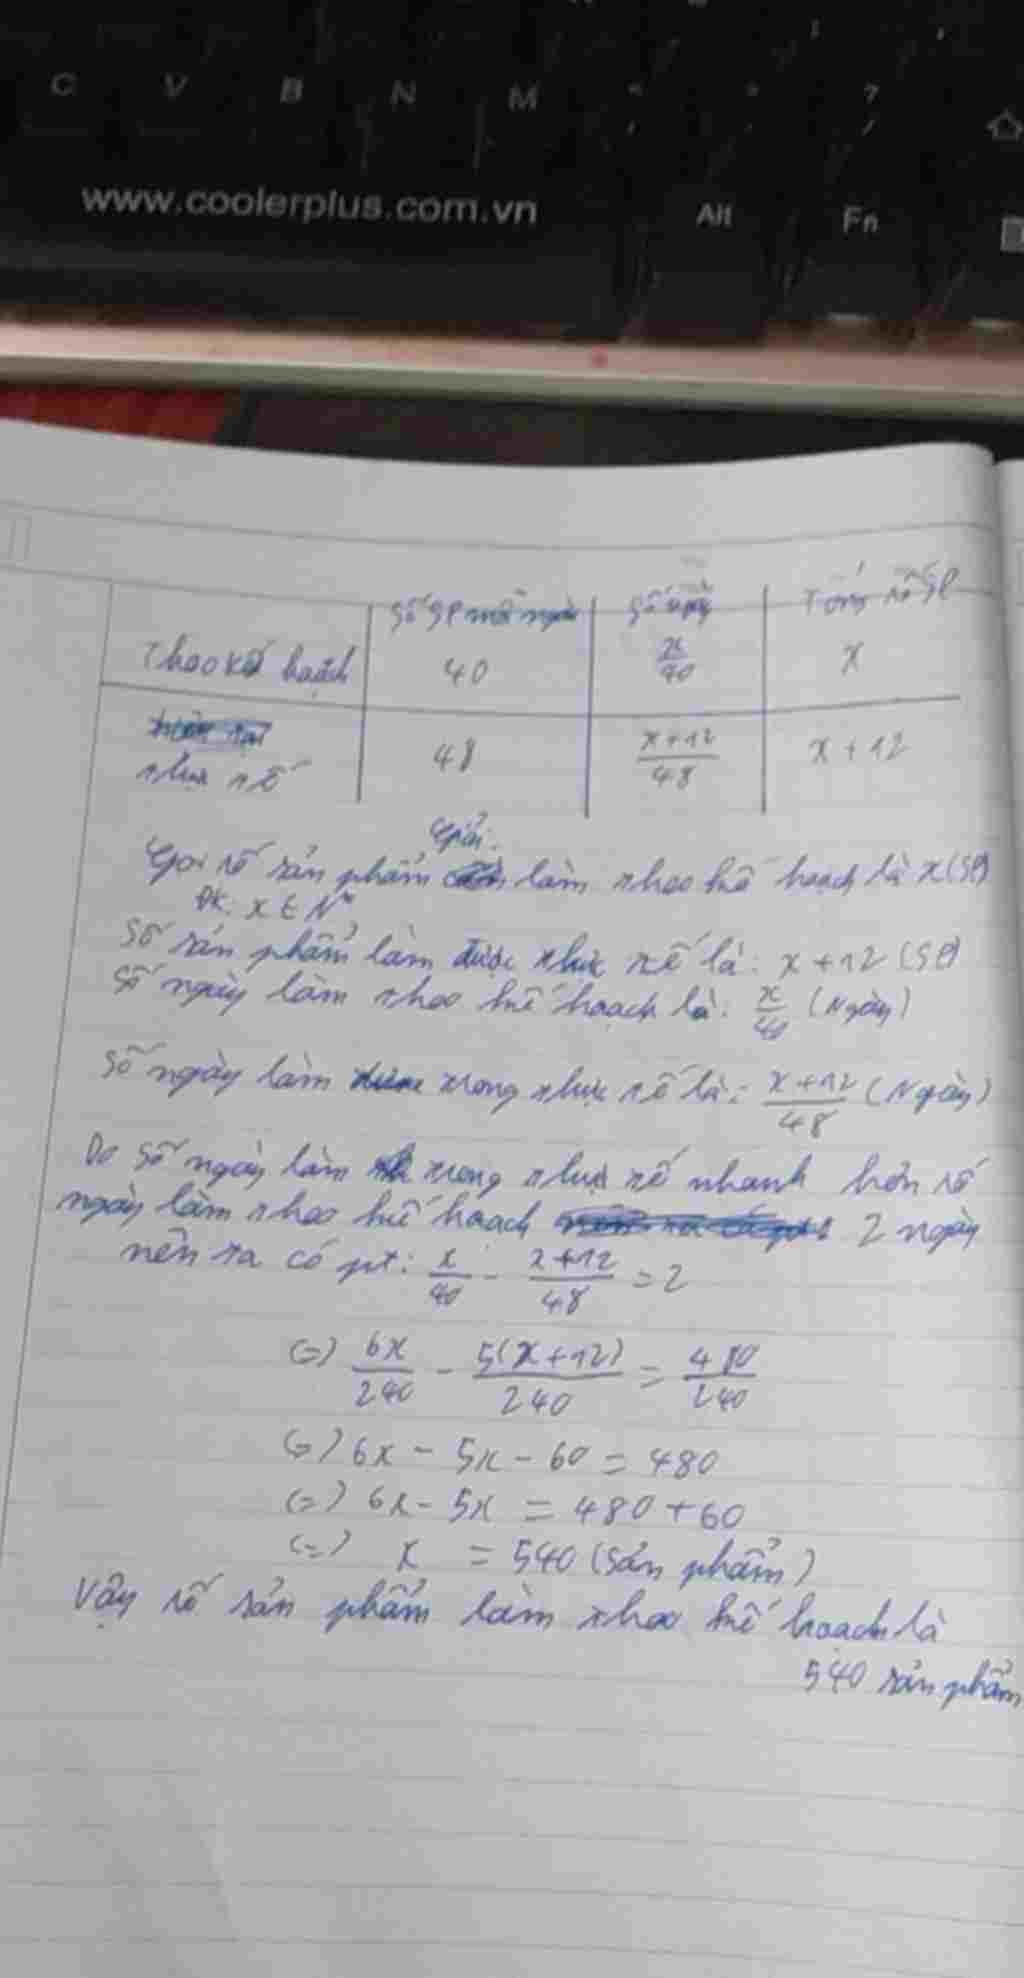 C V B N M < > ?
, . /
www.coolerplus.com.vn Alt Fn
Số SP mỗi ngày Số ngày Tổng số SP
Theo kế hoạch 40 x/40 x
thực tế 48 x+12/48 x+12
Giải:
Gọi số sản phẩm làm theo kế hoạch là x(SP)
ĐK: x ∈ N*
Số sản phẩm làm được thực tế là: x+12 (SP)
Số ngày làm theo kế hoạch là: x/40 (Ngày)
Số ngày làm trong thực tế là: x+12/48 (Ngày)
Do số ngày làm trong thực tế nhanh hơn số
ngày làm theo kế hoạch 2 ngày
nên ta có pt: x/40 - x+12/48 = 2
(=) 6x/240 - 5(x+12)/240 = 480/240
(=) 6x - 5x - 60 = 480
(=) 6x - 5x = 480 + 60
(=) x = 540 (sản phẩm)
Vậy số sản phẩm làm theo kế hoạch là
540 sản phẩm